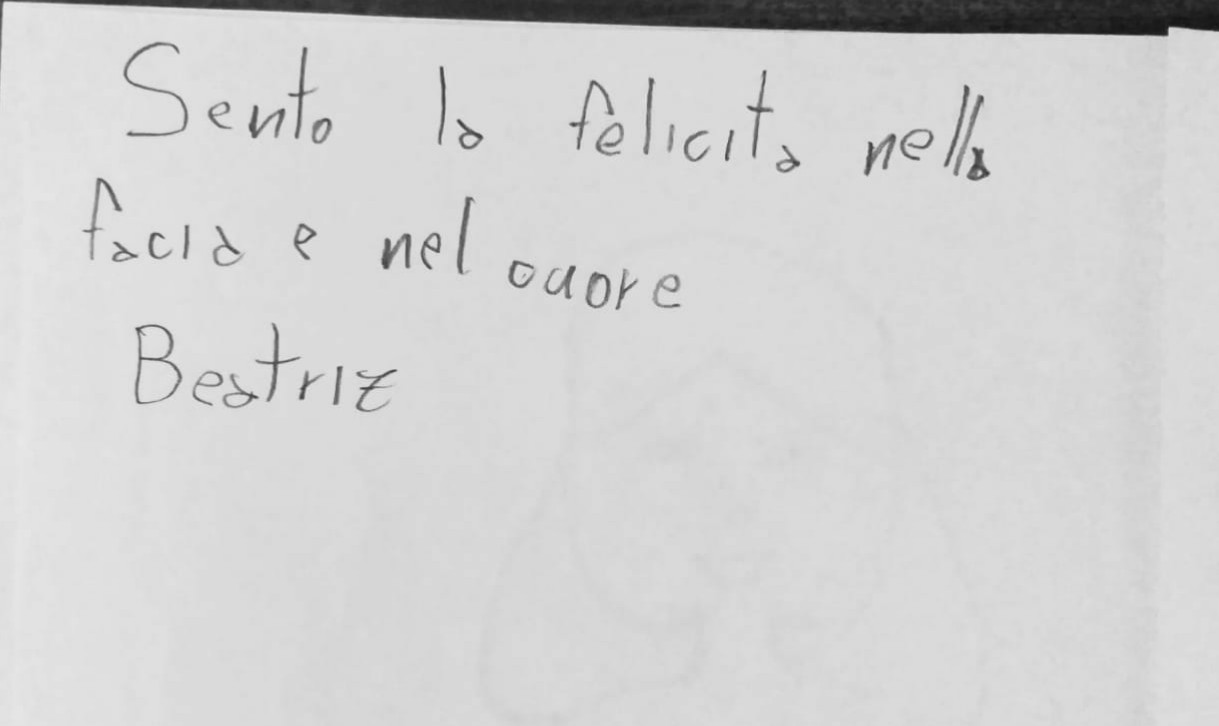 Sento la felicita nella
facia e nel cuore
Beatriz